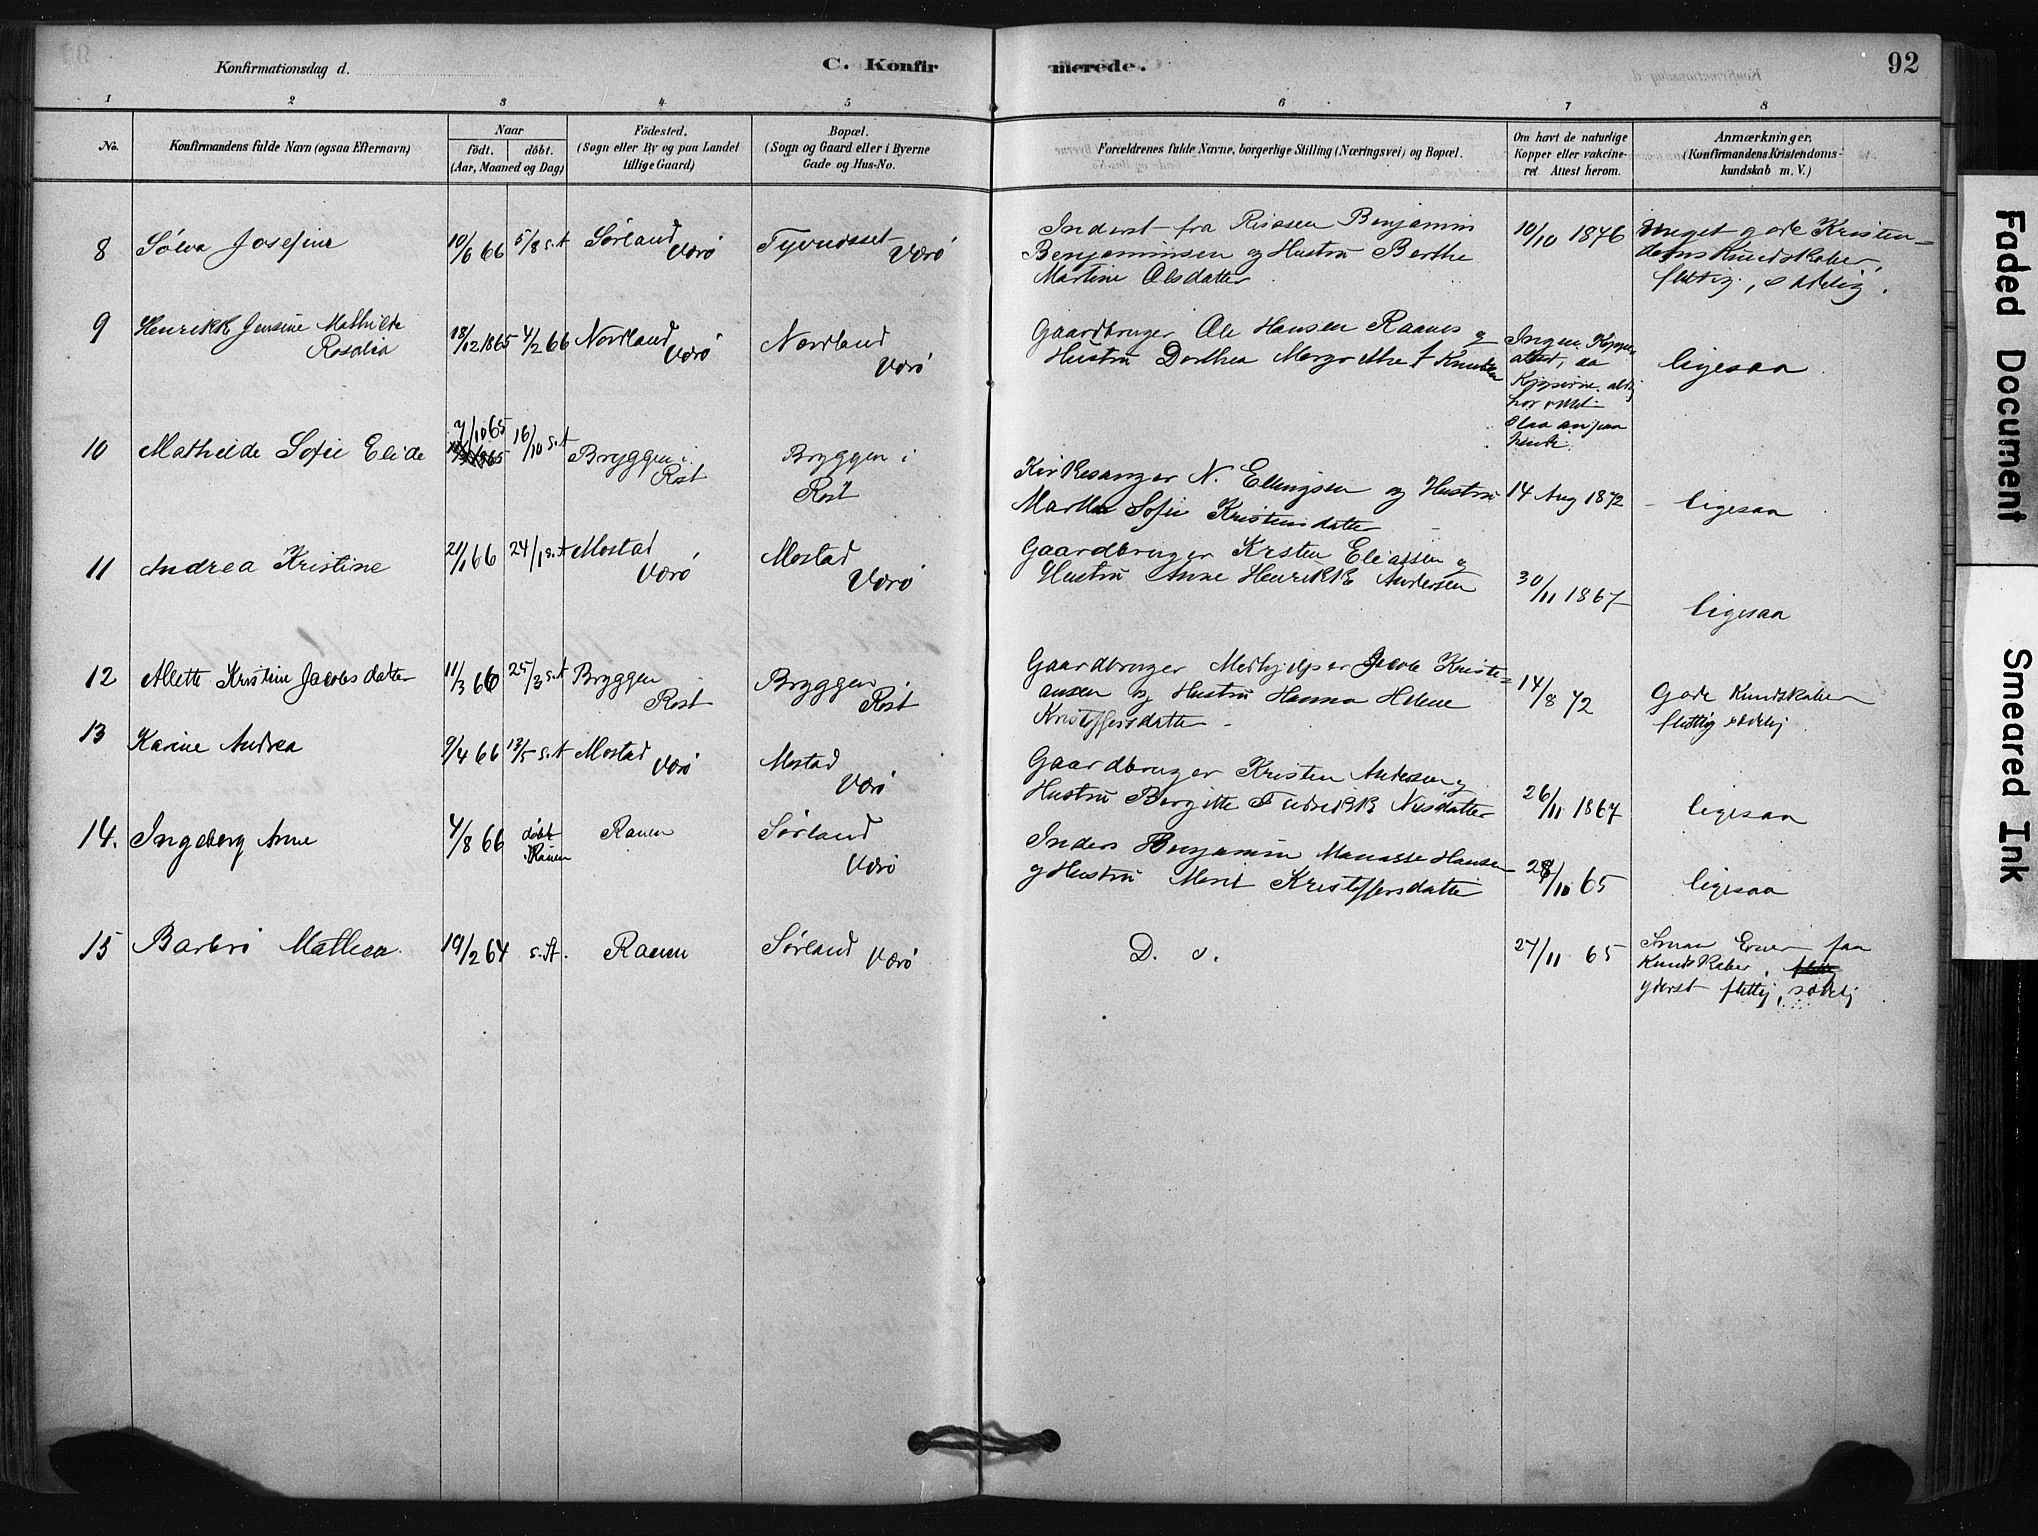 92
Konfirmationsdag d.
C. Konfirmerede.
1 2 3 4 5 6 7 8
No.
Konfirmandens fulde Navn (ogsaa Efternavn)
Naar
født. døbt.
(Aar, Maaned og Dag)
Födested.
(Sogn eller By og paa Landet
tillige Gaard)
Bopæl.
(Sogn og Gaard eller i Byerne
Gade og Hus-No.
Forældrenes fulde Navne, borgerlige Stilling (Næringsvei) og Bopæl.
Om havt de naturlige
Kopper eller vakcine-
ret. Attest herom.
Anmærkninger.
(Konfirmandens Kristendoms-
kundskab m. V.)
8 Sølva Josefine 10/6 66 5/8 s.A Sørland Værö Værö
Inderst fra Benjamin 10/10 1876 Meget gode Kristen-
Benjaminsen og Hustru Berthe doms Kundskaber,
Martine Olsdatter flittig, sædelig.
9 Henrikke Jensine Mathilde
Rosalia 18/12 1865 4/2 66 Nordland Værö Nordland Værö
Gaardbruger Ole Hansen Raanes og
Hustru Dorthea Margrethe f Knudsen
Ingen Koppe-
attest, da
slaa an paa
hende.
ligesaa
10 Mathilde Sofie Elide 7/10 65 16/10 s.A Bryggen i Röst Bryggen i Röst
Kirkesanger N. Ellingsen og Hustru 14 Aug 1872 ligesaa
Martha Sofie Kristensdatter
11 Andrea Kristine 21/1 66 24/1 s.A Mostad Værö Mostad Værö
Gaardbruger Krsten Eliassen og
Hustru Anne Henrikke Andersen 30/11 1867 ligesaa
12 Alette Kristine Jacobsdatter 11/3 66 25/3 s.A Bryggen Röst Bryggen Röst
Gaardbruger Medhjelper Jacob Kristi-
ansen og Hustru Hanna Helene 14/8 72 Gode Kundskaber
Kristoffersdatter flittig sædelig
13 Karine Andrea 9/4 66 13/5 s.A Mostad Værö Mostad Værö
Gaardbruger Kristen Andersen og
Hustru Bergitte Fredrikke Nilsdatter 26/11 1867 ligesaa
14. Ingeborg Anne 4/8 66 døbt Ranen Ranen Sørland Værö
Inders Benjamin Manasse Hansen
og Hustru Marit Kristoffersdatter 28/10 65 ligesaa
15 Barbrö Mathea 19/2 64 s.A. Ranen Sørland Værö
D. s. 27/11 65 Smaa Evner faa
Kundskaber,
yderst flittig, sædelig
Faded Document
Smeared Ink